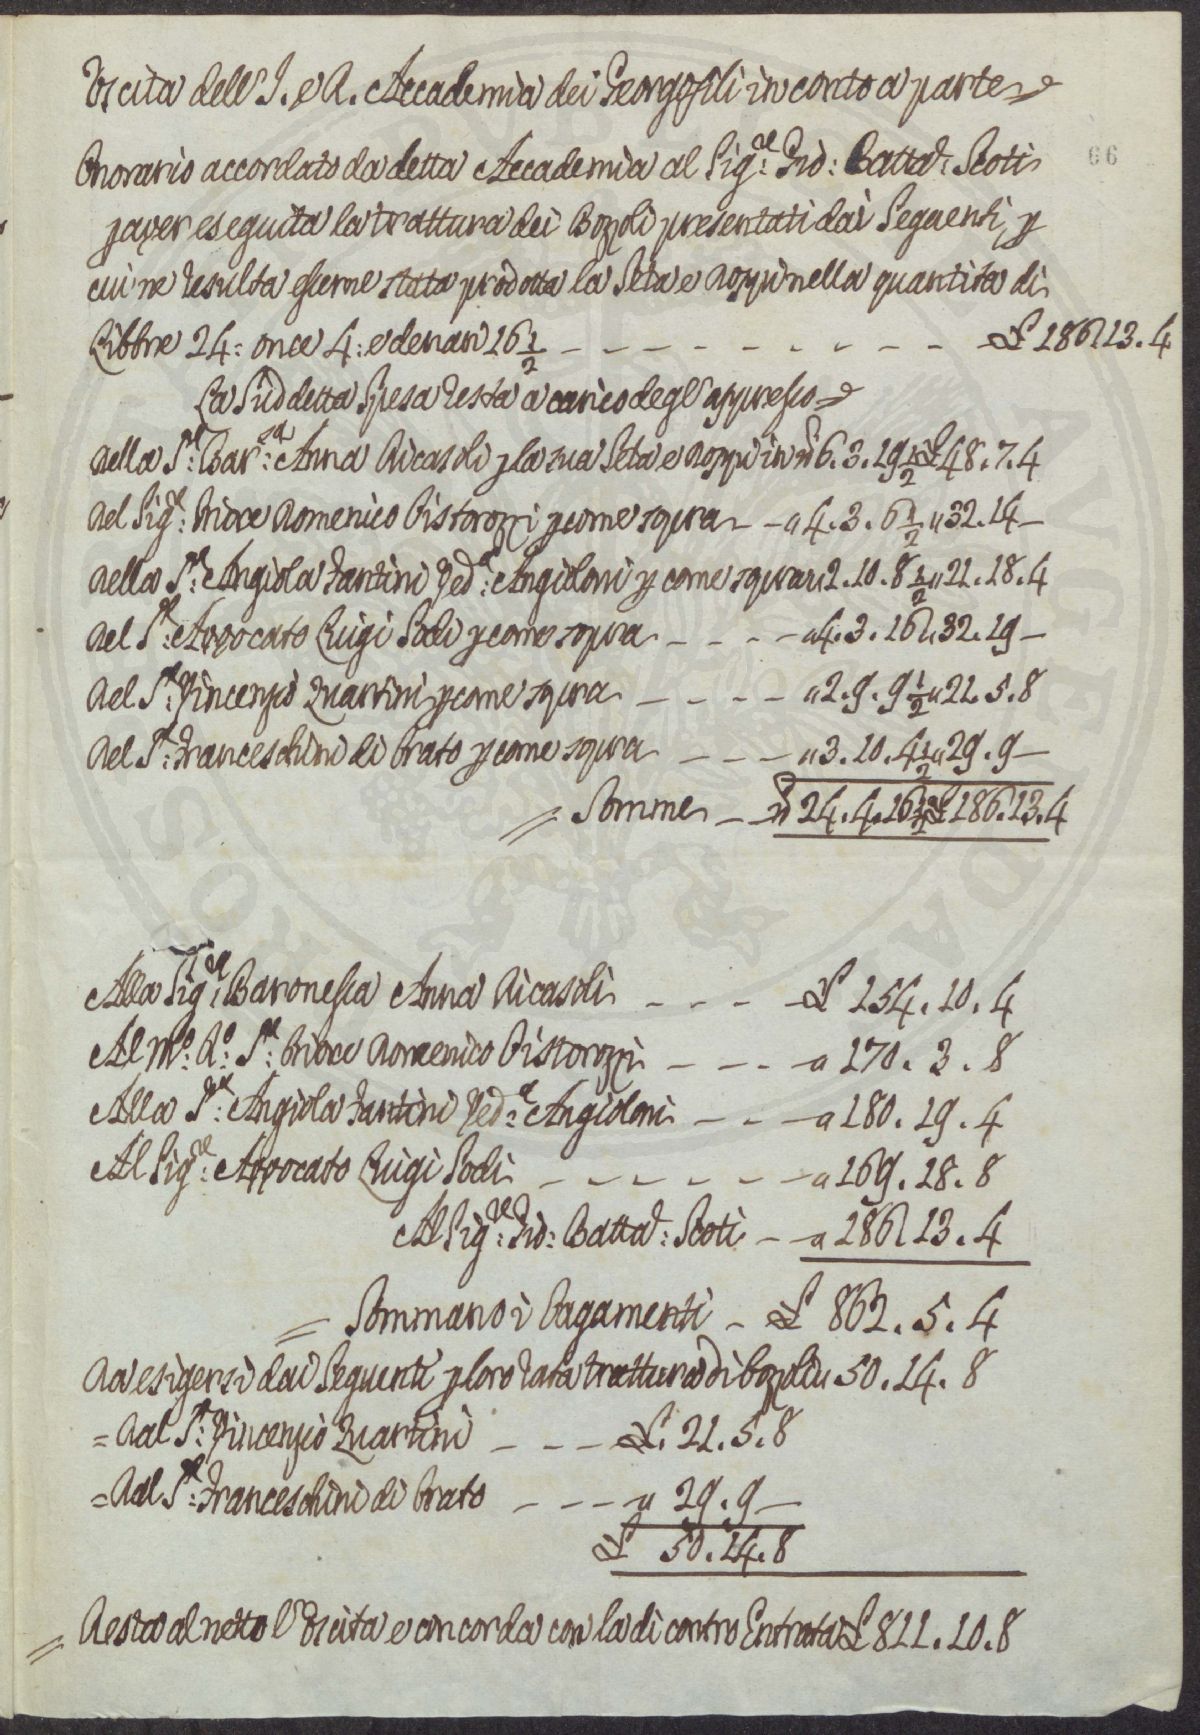 Vscita dell'I. e R. Accademia dei Georgofili in conto a parte
66
Onorario accordato da detta Accademia al Sig.re Gio: Batta: Scoti
p aver eseguita la trattura dei Bozzoli presentati dai Seguenti, p
cui ne resulta esserne stata prodotta la Seta e doppi nella quantità di
Libbre 24: once 4: e denari 16 1/2 - - - - - - - - - - £ 186.13.4
La Suddetta Spesa resta a carico degl'appresso
Della S.ra Bar.ssa Anna Ricasoli p la sua Seta e doppi in lb 6.3.19 1/2 £ 48.7.4
Del Sig.re Priore Domenico Pistorozzi p come sopra - " 4.3.6 1/2 " 32.14 -
Della S.ra Angiola Fantini Ved.a Angioloni p come sopra " 2.10.8 1/2 " 21.18.4
Del S.r Avvocato Luigi Sodi p come sopra - - - - " 4.3.16 " 32.19 -
Del S.r Vincenzio Martini p come sopra - - - - " 2.9.9 1/2 " 21.5.8
Del S.r Franceschini di Prato p come sopra - - - " 3.10.4 1/2 " 29.9 -
= Somme - - lb 24.4.16 1/2 £ 186.13.4
Alla Sig.ra Baronessa Anna Ricasoli - - - - £ 154.10.4
Al M.o R.o S.r Priore Domenico Pistorozzi - - - - " 170.3.8
Alla S.ra Angiola Fantini Ved.a Angioloni - - - " 180.19.4
Al Sig.re Avvocato Luigi Sodi - - - - - - - " 169.18.8
Al Sig.re Gio: Batta: Scoti - - " 186.13.4
= Sommano i Pagamenti - £ 862.5.4
Da esigersi dai Seguenti p loro rata trattura di bozzoli " 50.14.8
= Dal S.r Vincenzio Martini - - - £. 21.5.8
= Dal S.r Franceschini di Prato - - - " 29.9 -
£ 50.14.8
= Resta al netto l'Vscita e concorda con la di contro Entrata £ 811.10.8